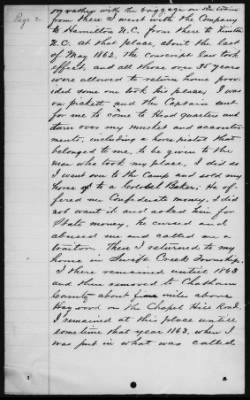 Page 2.
my ... with the baggage on the train
from there I went with the Company
to Hamilton N.C. from there to Kinston
N.C. at that place, about the last
of May 1862, the Conscript law took
effect, and all those over 35 years
were allowed to return home provided
some one took his place. I was
on picket and the Captain sent
for me to come to Head quarters and
turn over my musket and accoutrements,
including a horse pistol that
belonged to me, to be given to the
man who took my place, I did so
I went on to the Camp and sold my
horse to a Baker; He offered
me Confederate money, I did
not want it and asked him for
State money, he cursed and
abused me and called me a
traitor. Then I returned to my
home in Swift Creek Township.
I there remained until 1863
and then removed to Chatham
County about five miles above
Haywood on the Chapel Hill Road.
I remained at this place until
sometime that year 1863, when I
was put in what was called